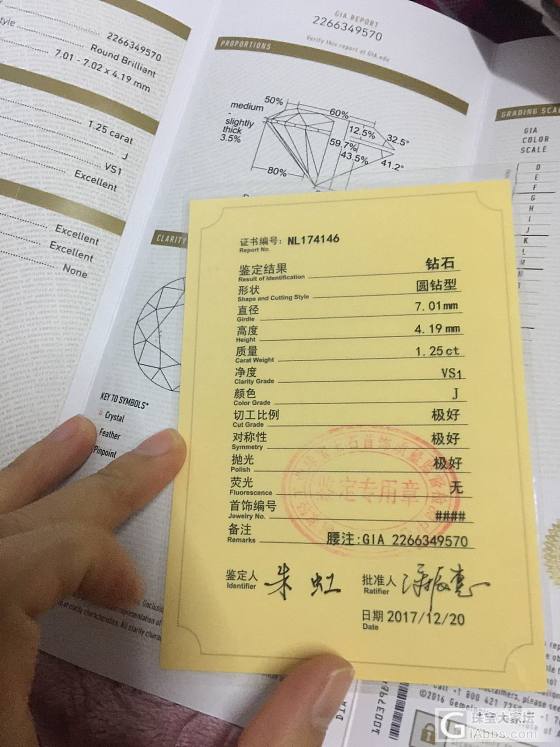 2266349570
Round Brilliant
7.01 - 7.02 x 4.19 mm
1.25 carat
J
VS1
Excellent
Excellent
Excellent
None
GIA REPORT
2266349570
Verify this report at GIA.edu
PROPORTIONS
50%
60%
medium
-
slightly
thick
3.5%
12.5%
32.5°
59.7%
43.5%
41.2°
80%
CLARITY
KEY TO SYMBOLS*
Crystal
Feather
Pinpoint
GRADING SCALE
GIA
COLOR
SCALE
D
E
F
G
H
I
J
K
L
M
N
证书编号: NL174146
Report No.
鉴定结果 钻石
Result of Identification
形状 圆钻型
Shape and Cutting Style
直径 7.01mm
Girdle
高度 4.19mm
Height
质量 1.25ct
Carat Weight
净度 VS1
Clarity Grade
颜色 J
Color Grade
切工比例 极好
Cut Grade
对称性 极好
Symmetry
抛光 极好
Polish
荧光 无
Fluorescence
首饰编号 ####
Jewelry No.
备注 腰注:GIA 2266349570
Remarks
鉴定专用章
鉴定人 朱虹
Identifier
批准人
Ratifier
日期 2017/12/20
Date
©2016 Gemological
珠宝大家坛
GIAbbs.com